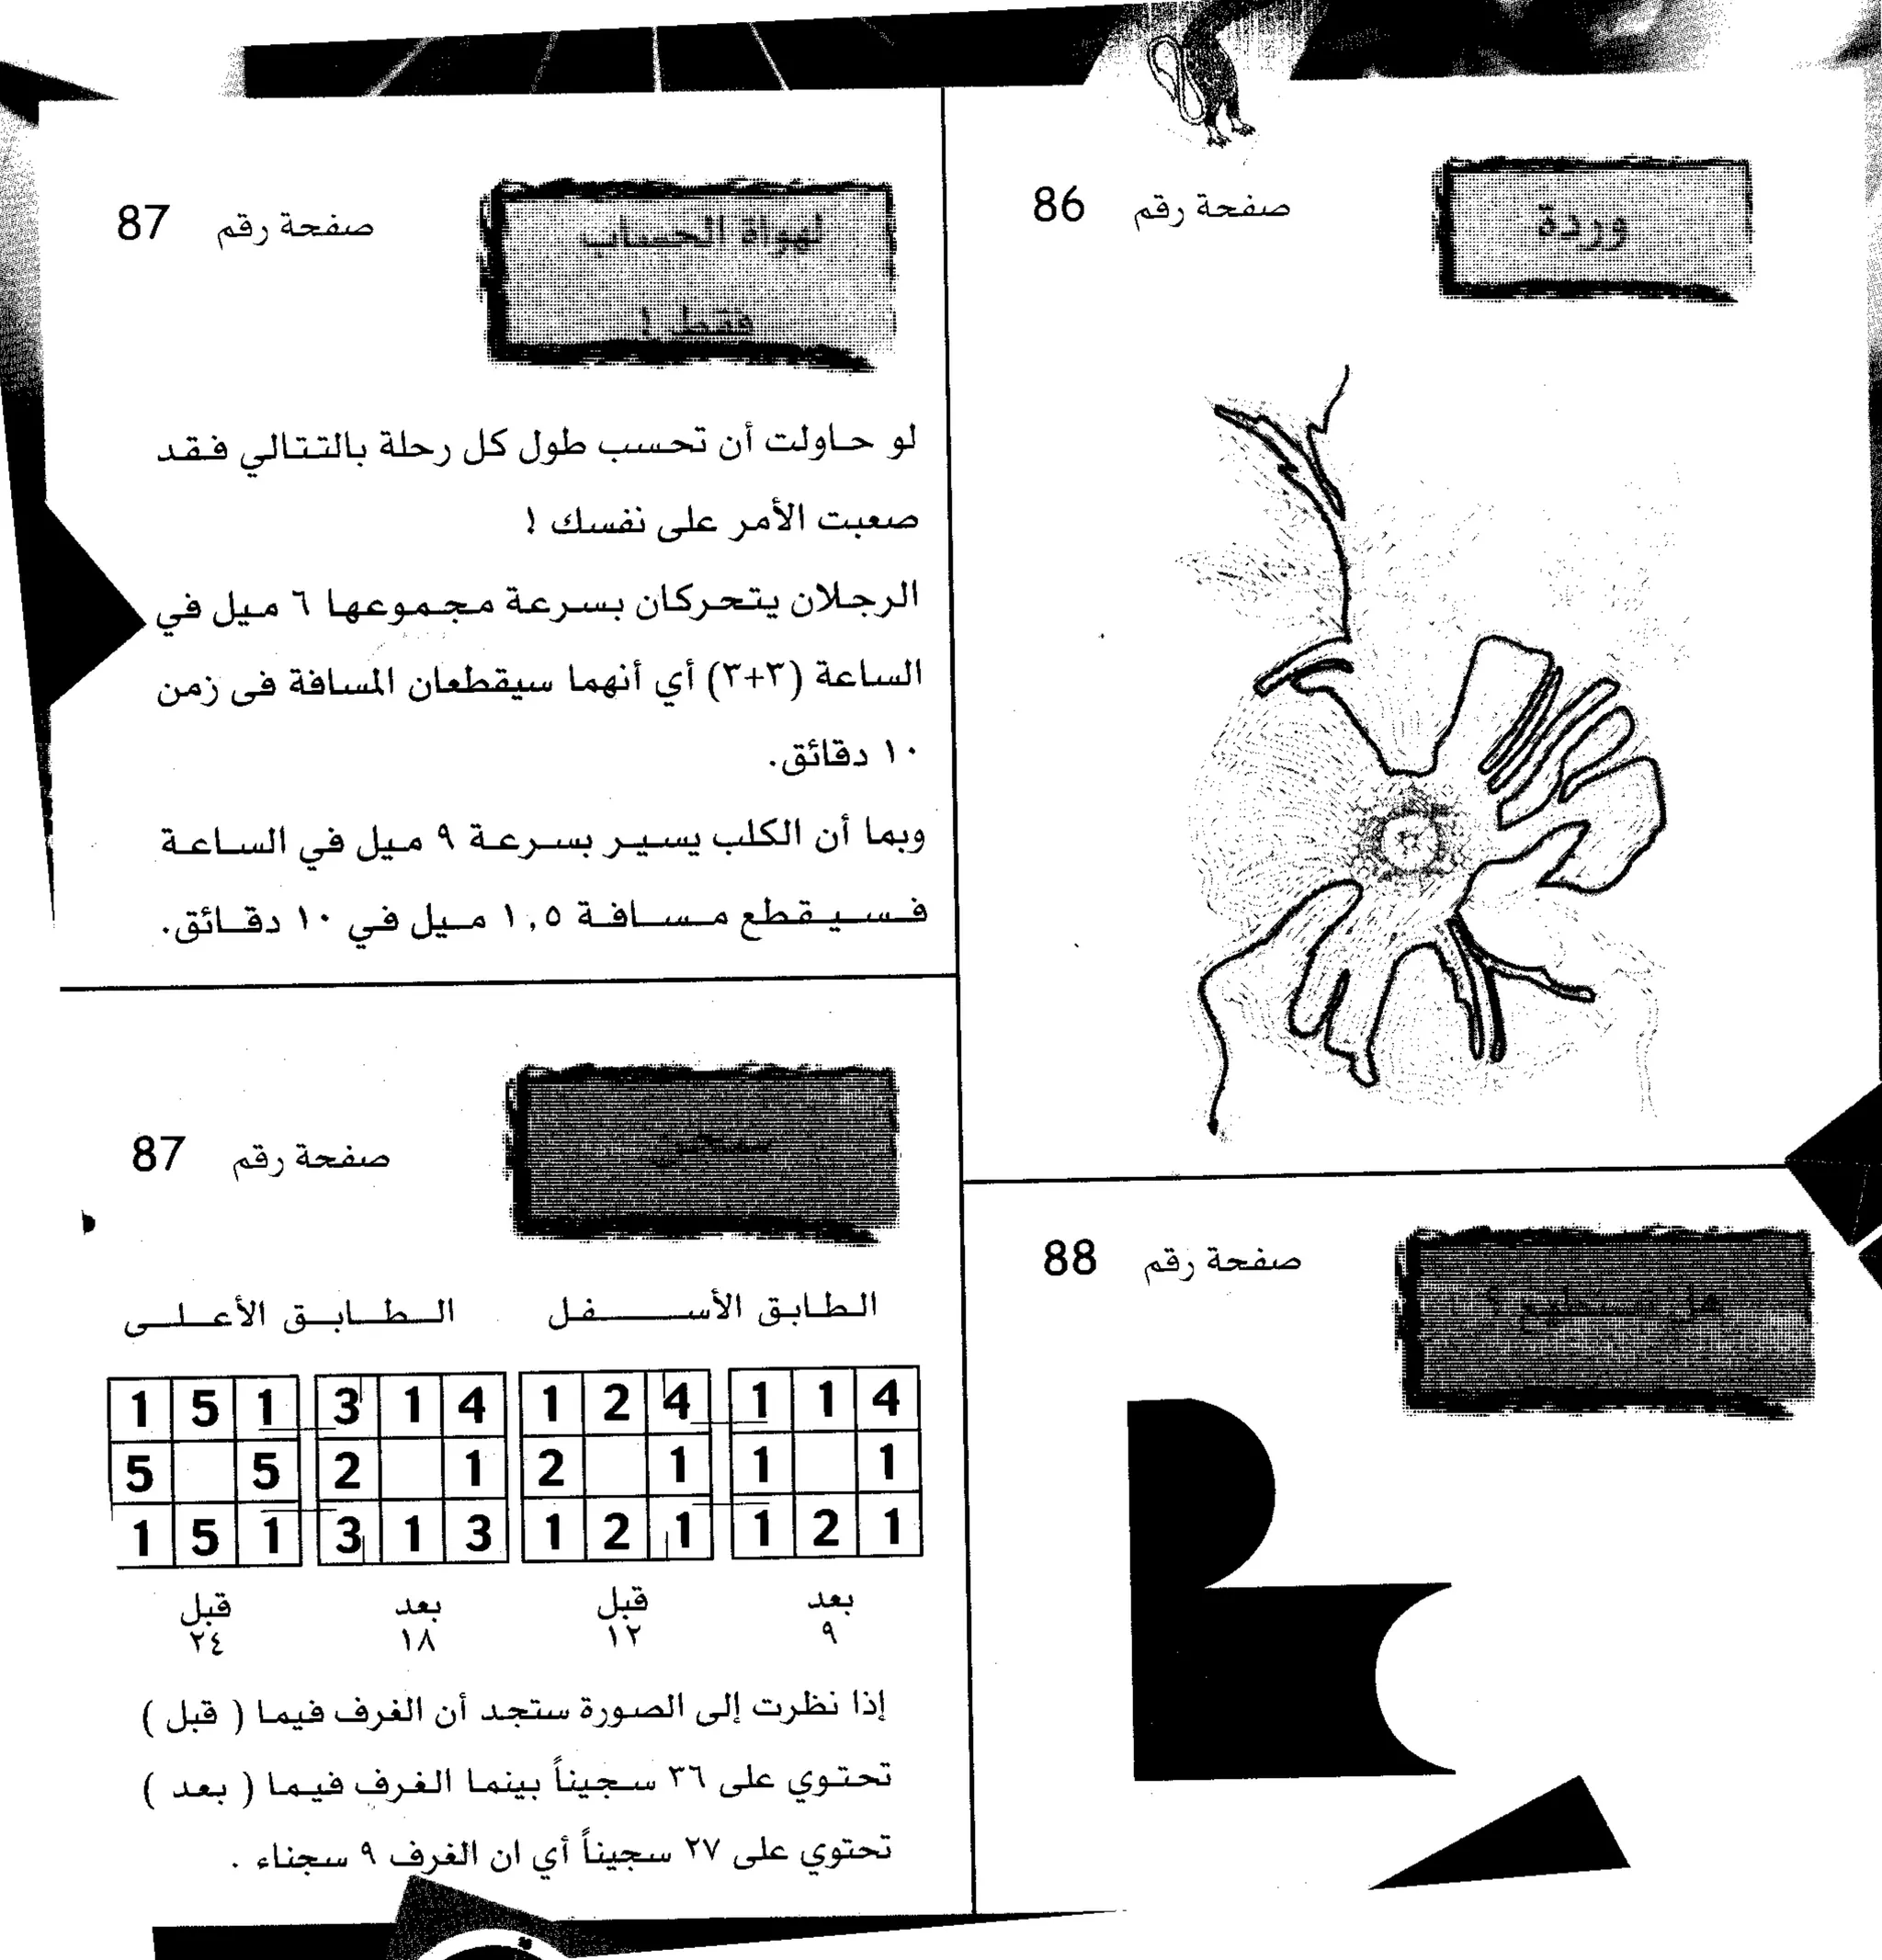 وردة
صفحة رقم 86
صفحة رقم 88
هل تستطيع ؟
لهواة الحساب
فقط !
صفحة رقم 87
لو حاولت أن تحسب طول كل رحلة بالتتالي فقد
صعبت الأمر على نفسك !
الرجلان يتحركان بسرعة مجموعها ٦ ميل في
الساعة (٣+٣) أي أنهما سيقطعان المسافة فى زمن
١٠ دقائق.
وبما أن الكلب يسير بسرعة ٩ ميل في الساعة
فسيقطع مسافة ١,٥ ميل في ١٠ دقائق.
صفحة رقم 87
الطابق الأسفل الطابق الأعلى
1 5 1 3 1 4 1 2 4 1 1 4
5 5 2 1 2 1 1 1
1 5 1 3 1 3 1 2 1 1 2 1
بعد قبل بعد قبل
٩ ١٢ ١٨ ٢٤
إذا نظرت إلى الصورة ستجد أن الغرف فيما ( قبل )
تحتوي على ٣٦ سجيناً بينما الغرف فيما ( بعد )
تحتوي على ٢٧ سجيناً أي ان الغرف ٩ سجناء .